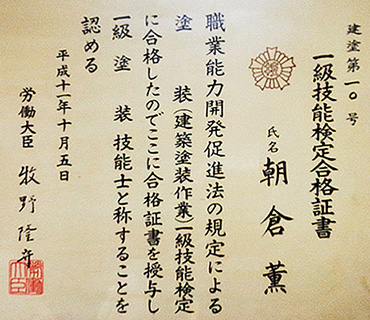 建塗第一〇号
一級技能検定合格証書
氏名 朝倉薫
職業能力開発促進法の規定による
塗装(建築塗装作業)一級技能検定
に合格したのでここに合格証書を授与し
一級塗装技能士と称することを
認める
平成十一年十月五日
労働大臣 牧野隆守